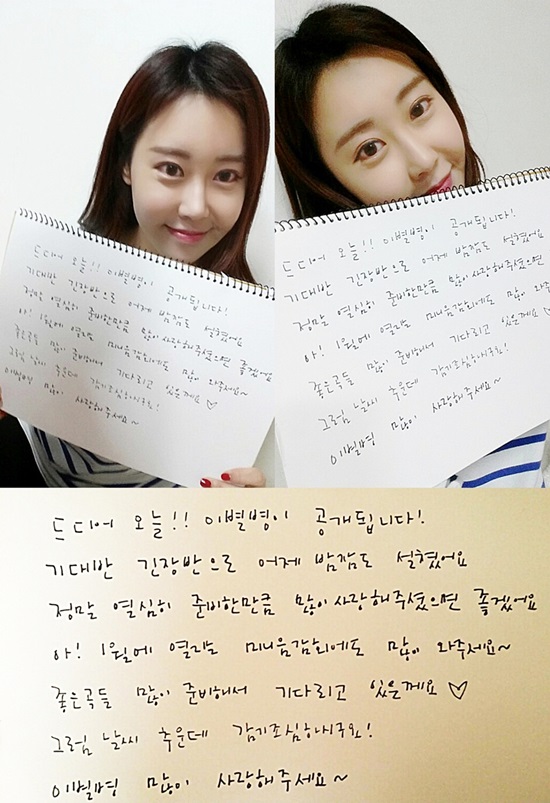 드디어 오늘!! 이별병이 공개됩니다!
기대반 긴장반으로 어제 밤잠도 설쳤어요
정말 열심히 준비한만큼 많이 사랑해주셨으면 좋겠어요
아! 1월에 열리는 미니음감회에도 많이 와주세요~
좋은곡들 많이 준비해서 기다리고 있을께요 ♡
그럼 날씨 추운데 감기조심하시구요!
이별병 많이 사랑해주세요~
드디어 오늘!! 이별병이 공개됩니다!
기대반 긴장반으로 어제 밤잠도 설쳤어요
정말 열심히 준비한만큼 많이 사랑해주셨으면 좋겠
아! 1월에 열리는 미니음감회에도 많이 와
좋은곡들 많이 준비해서 기다리고 있을께요 ♡
그럼 날씨 추운데 감기조심하시구요!
이별병 많이 사랑해주세요~
드디어 오늘!! 이별병이 공개됩니다!
기대반 긴장반으로 어제 밤잠도 설쳤어요
정말 열심히 준비한만큼 많이 사랑해주셨으면 좋겠어요
아! 1월에 열리는 미니음감회에도 많이 와주세요~
좋은곡들 많이 준비해서 기다리고 있을께요 ♡
그럼 날씨 추운데 감기조심하시구요!
이별병 많이 사랑해주세요~